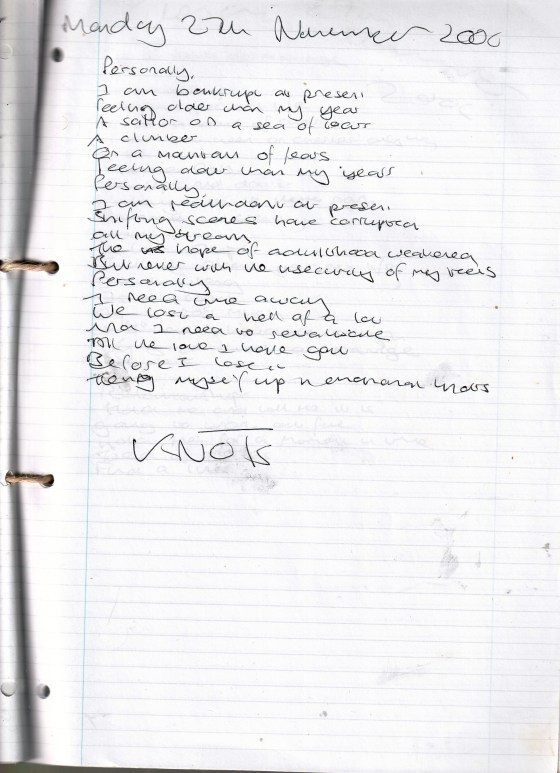 Monday 27th November 2006
Personally,
I am bankrupt at present
Feeling older than my years
A sailor on a sea of
A climber
On a mountain of fears
Feeling older than my years
Personally,
I am redundant at present
Shifting scenes have corrupted
all my dreams
The hope of adulthood weakened
But never with the insecurity of my teens
Personally
I need time away
We lost a hell of a lot
And I need to
All the love I have got
Before I lose it
Tying myself up in emotional knots
KNOTS